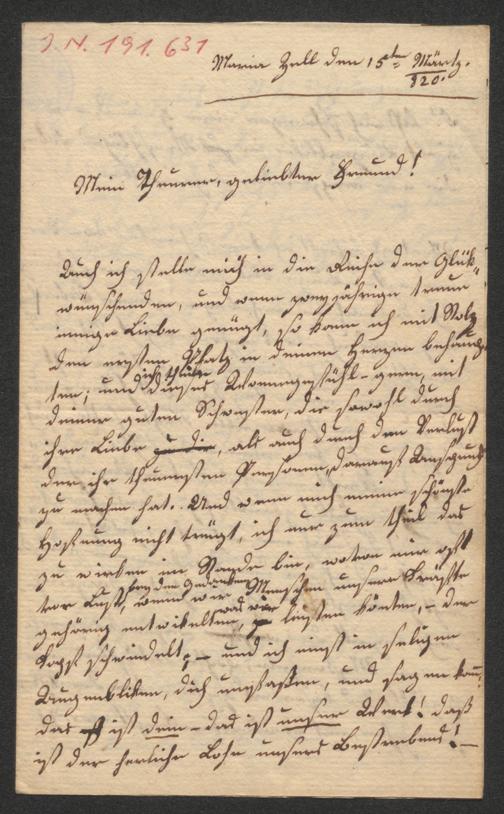 J. N. 191.631
Maria Zell den 15ten März.
820.
Mein Theurer, geliebter Freund!
Auch ich stelle mich in die Reihe der Glük-
wünschenden, und wenn zweyjährige treue
innige Liebe genügt, so kann ich mit Stolz
den ersten Platz in deinem Herzen behaup-
ten; und ich theile dieses Wonnegefühl gern, mit
deiner guten Schwester, die sowohl durch
ihre Liebe zu dir, als auch durch den Verlust
der ihr theuersten Personen, darauf Anspruch
zu machen hat. Und wenn mich meine schönste
Hoffnung nicht trügt, ich nur zum theil das
zu wirken im Stande bin, wovon mir oft
vor Lust, bey dem Gedanken wenn wir Menschen unsere Kräfte
gehörig entwikelten, was wir leisten könten, – der
Kopf schwindelt; – und ich einst in seligen
Augenbliken, dich umfassen, und sagen kann,
das ist dein – das ist unser Werk! daß
ist der herliche Lohn unsers Bestrebens! –